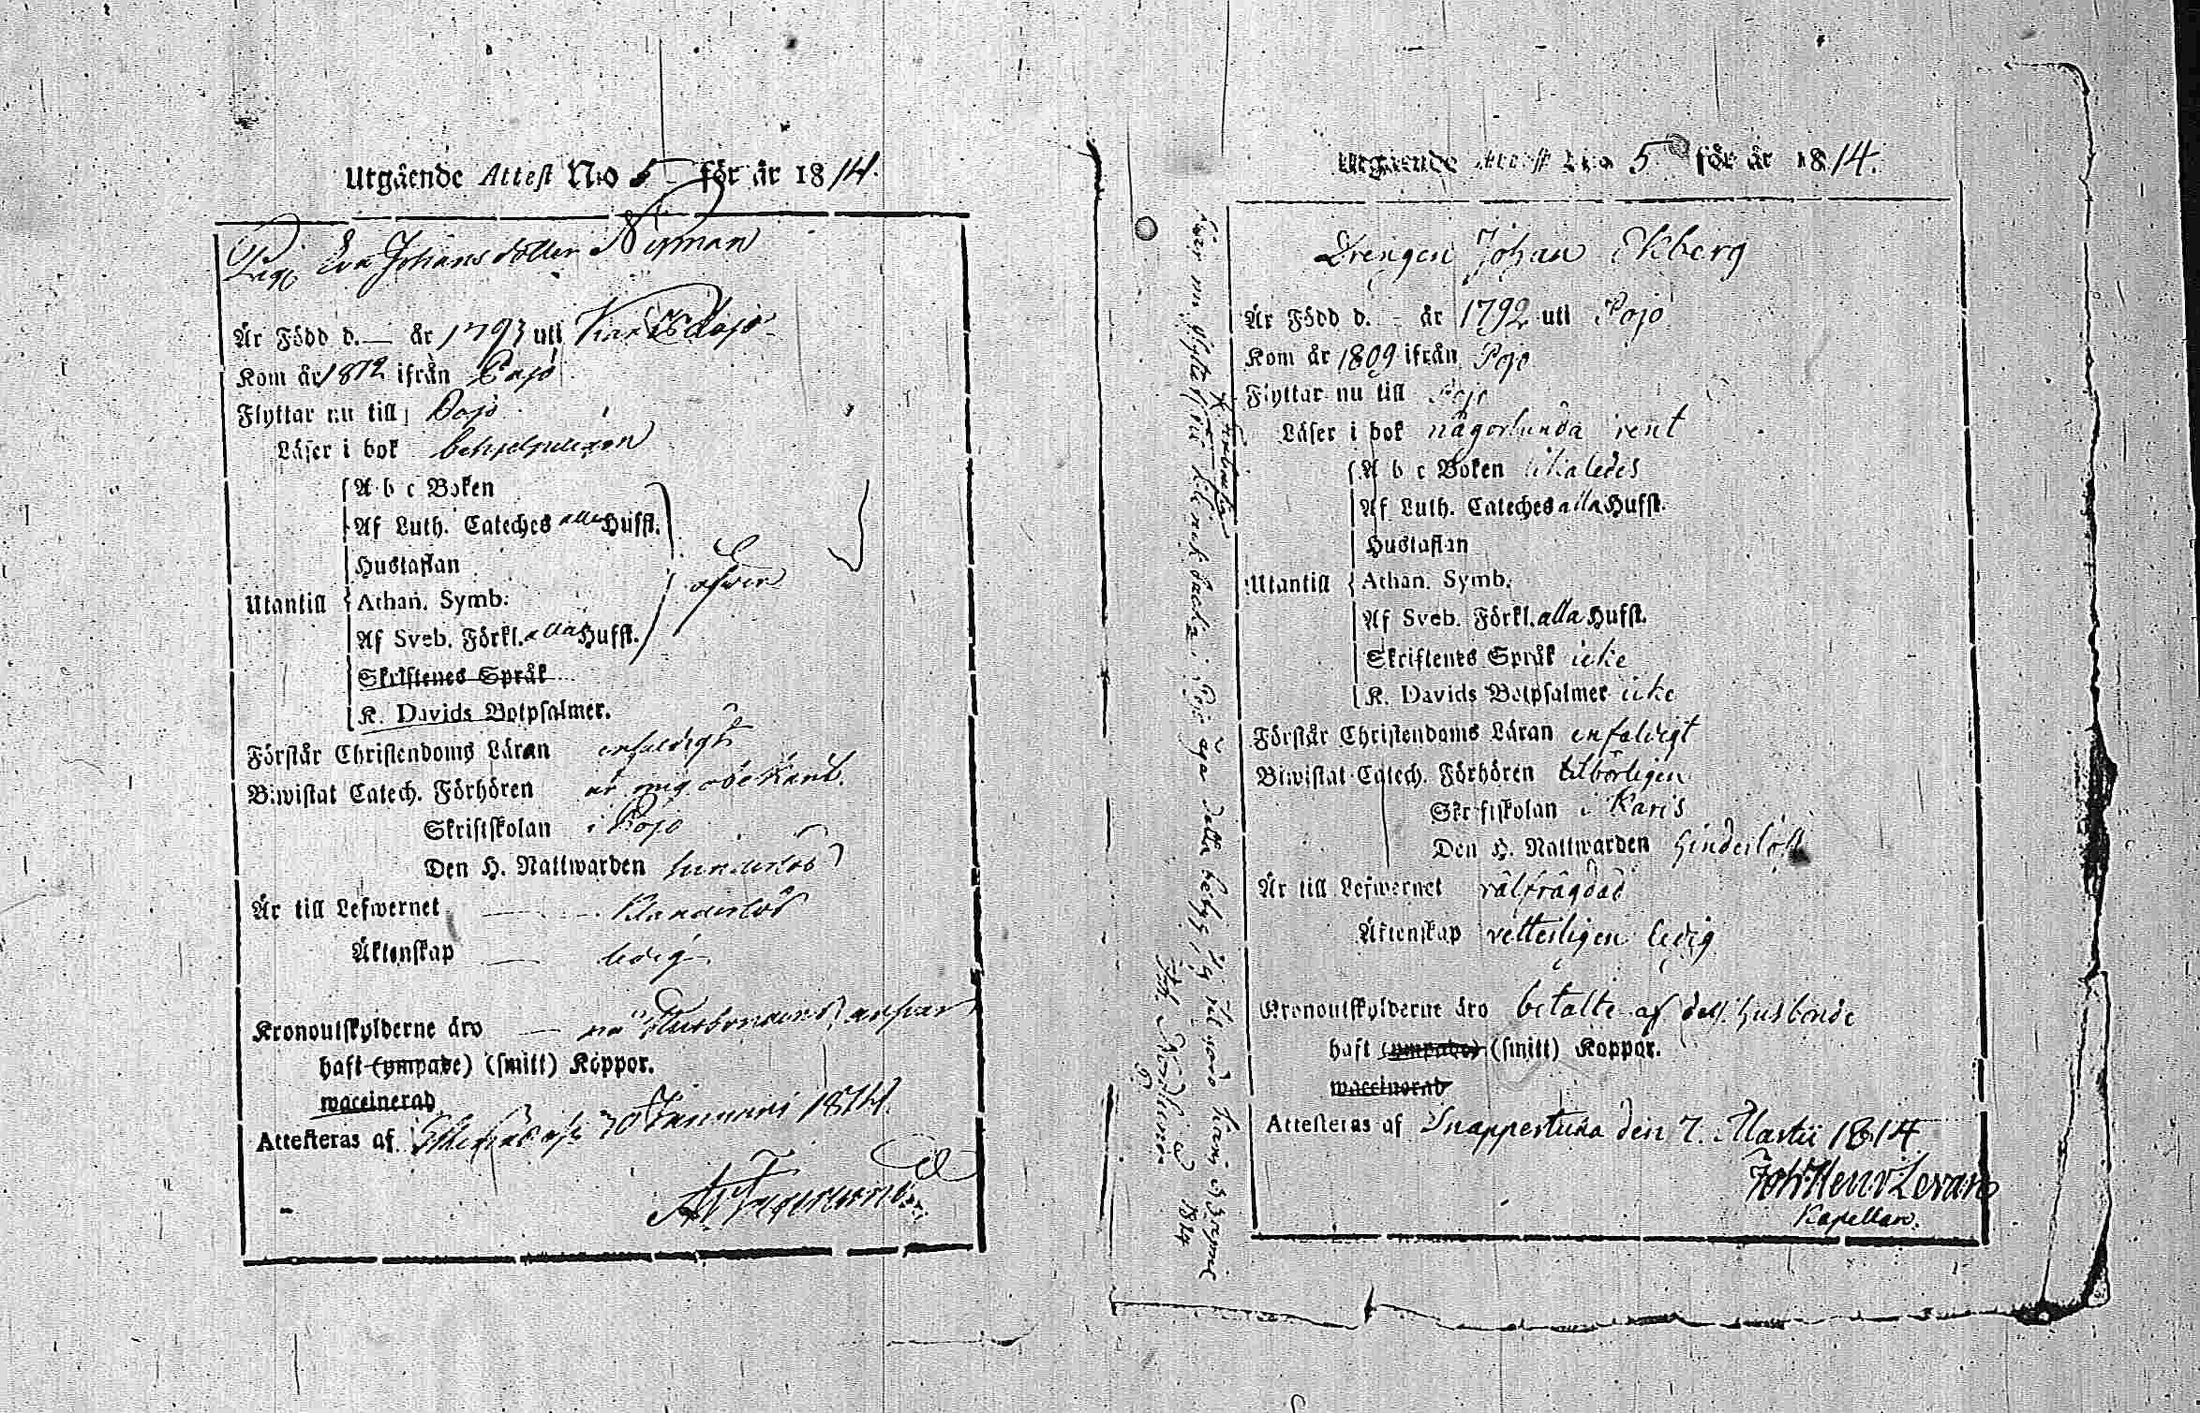 Utgående Attest N:o 5 för år 1814.
Pig. Eva Johans dotter Nyman
Är Född d. — år 1793 uti
Kom år 1812 ifrån Pojo
Flyttar nu till Pojo
Läser i bok behjelpeligen
A b c Boken
Af Luth. Cateches alla Hufst.
Hustaflan
Utantill Athan. Symb.
Af Sveb. Förkl. alla Hufst.
Skriftenes Språk
K. Davids Botpsalmer.
Förstår Christendoms Läran enfaldigt
Biwistat Catech. Förhören är mig obekant.
Skriftskolan i Pojo
Den H. Nattwarden
Är till Lefwernet — Klanderlös
Äktenskap — ledig
Kronoutskylderne äro — på Husbondens ansvar
haft (ympade) (smitt) Koppor.
waccinerad
Attesteras af 20 Januari 1814.
Utgående Attest N:o 5 för år 1814.
Drengen Johan Ekberg
Är Född d. - år 1792 uti Pojo
Kom år 1809 ifrån Pojo
Flyttar nu till Pojo
Läser i bok någorlunda rent
A b c Boken likaledes
Af Luth. Cateches alla Hufst.
Hustaflan
Utantill Athan. Symb.
Af Sveb. Förkl. alla Hufst.
Skriftenes Språk icke
K. Davids Botpsalmer icke
Förstår Christendoms Läran enfaldigt
Biwistat Catech. Förhören tilbörligen
Skriftskolan i Karis
Den H. Nattwarden hinderlöst
Är till Lefwernet välfrägdad
Äktenskap vetterligen ledig
Kronoutskylderne äro betalte af dess husbonde
haft (ympade) (smitt) Koppor.
waccinerad
Attesteras af Snappertuna den 7. Martii 1814
Joh. Henr Levan
Kapellan.